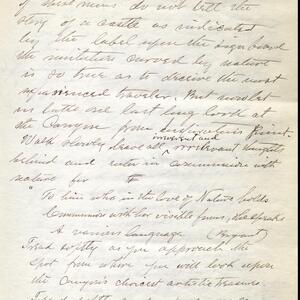 of these ruins do not tell the
story of a castle as indicated
by the label upon the sign board
the imitation carved by nature
is so true as to deceive the most
experienced traveler. But now let
us take one last long look at
the Canyon from Point.
Walk slowly, leave all irrelevant thoughts
behind and enter in communion with
nature for
"To him who in the love of Nature holds
Communion with her visible forms, she speaks
A various language. (Bryant)
Tread softly as you approach the
spot from where you will look upon
the Canyon's choicest artistic treasures